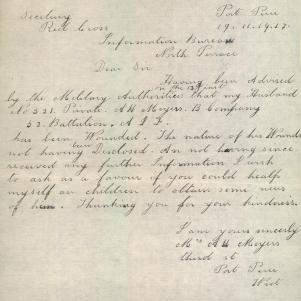 Secretary Port Pirie
Red Cross 19.11.1917.
Information Bureau
North Terrace
Dear Sir
Having been Advised
on the 13th inst
by the Military Authorities that my Husband
Private. A H Meyers. B Company
52. Battalion, A I F.
has been Wounded. The nature of his Wounds
not having been Disclosed. An not having since
received any further Information I wish
to ask as a favour if you could healp
myself an children to obtain some news
of him. Thanking you for your kindness.
I am yours sincerly
Mrs A H Meyers
third st
Port Pirie
West